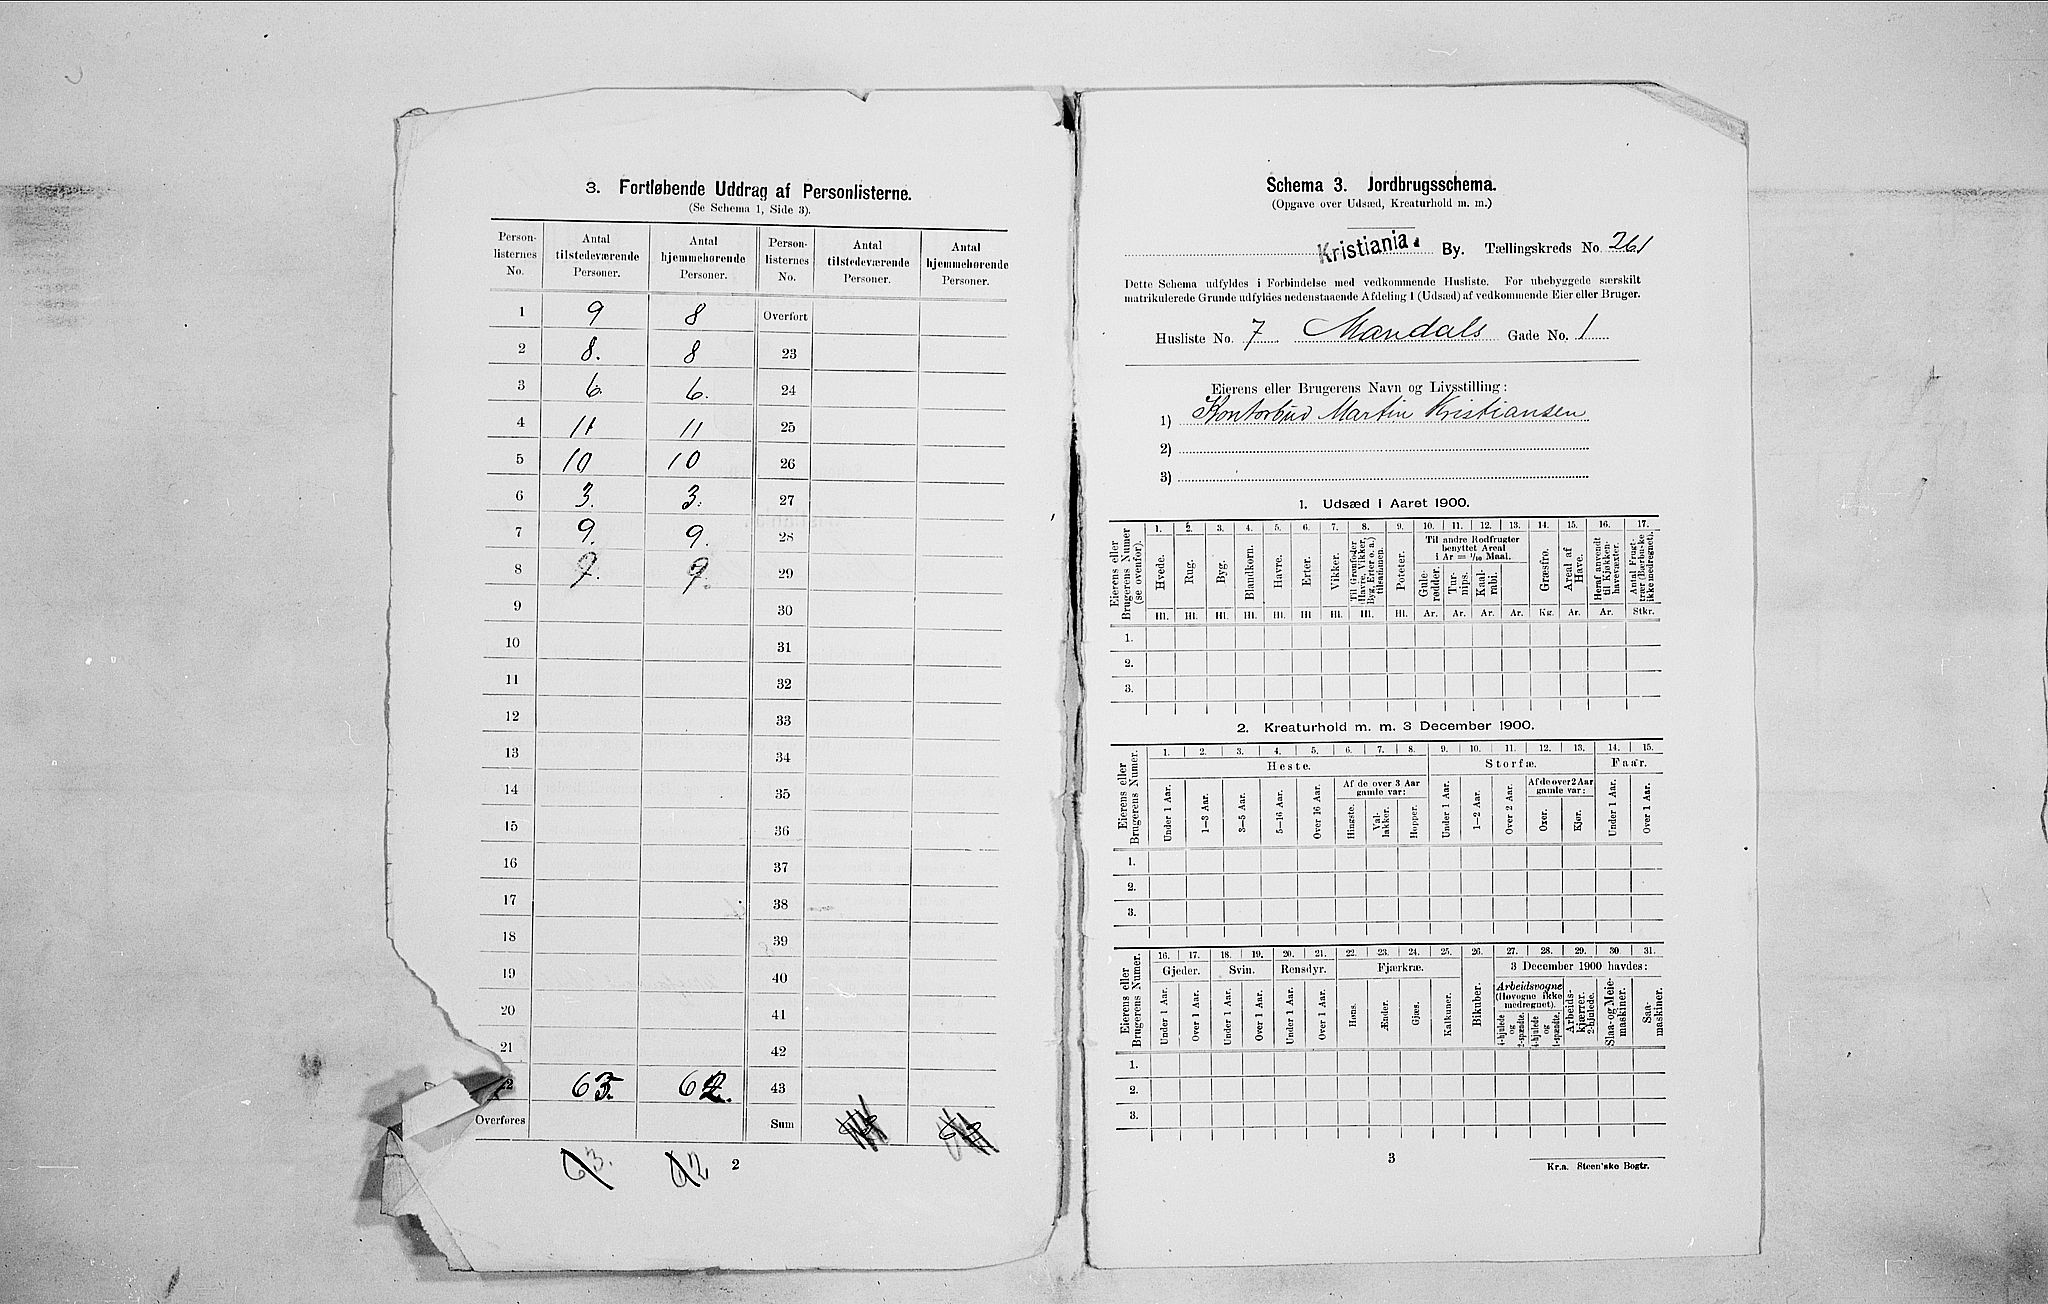 3. Fortløbende Uddrag af Personlisterne.
(Se Schema 1, Side 3).
Person-listernes No. | Antal tilstedeværende Personer. | Antal hjemmehørende Personer. | Person-listernes No. | Antal tilstedeværende Personer. | Antal hjemmehørende Personer.
1 9 8 Overført
2 8. 8 23
3 6. 6. 24
4 11 11 25
5 10 10 26
6 3. 3. 27
7 9. 9. 28
8 7. 9. 29
9 30
10 31
11 32
12 33
13 34
14 35
15 36
16 37
17 38
18 39
19 40
20 41
21 42
22 63. 62. 43
Overføres Sum
63. 62
2
Schema 3. Jordbrugsschema.
(Opgave over Udsæd, Kreaturhold m. m.)
Kristiania. By. Tællingskreds No. 261
Dette Schema udfyldes i Forbindelse med vedkommende Husliste. For ubebyggede særskilt
matrikulerede Grunde udfyldes nedenstaaende Afdeling 1 (Udsæd) af vedkommende Eier eller Bruger.
Husliste No. 7 Mandals Gade No. 1
Eierens eller Brugerens Navn og Livsstilling:
1) Kontorbud Martin Kristiansen
2)
3)
1. Udsæd i Aaret 1900.
Eierens eller Brugerens Numer (se ovenfor).
1. 2. 3. 4. 5. 6. 7. 8. 9. 10. 11. 12. 13. 14. 15. 16. 17.
Hvede. Rug. Byg. Blandkorn. Havre. Erter. Vikker. Til Grønfoder (Havre, Vikker, Byg, Erter o. a.) tilsammen. Poteter.
Til andre Rodfrugter benyttet Areal i Ar = 1/10 Maal.
Gule-rødder. Tur-nips. Kaal-rabi. Græsfrø. Areal af Have. Heraf anvendt til Kjøkken-havevæxter. Antal Frugt-trær (Bærbuske ikke medregnet).
Hl. Hl. Hl. Hl. Hl. Hl. Hl. Hl. Hl. Ar. Ar. Ar. Ar. Kg. Ar. Ar. Stkr.
1.
2.
3.
2. Kreaturhold m. m. 3 December 1900.
Eierens eller Brugerens Numer.
1. 2. 3. 4. 5. 6. 7. 8. 9. 10. 11. 12. 13. 14. 15.
Heste. Storfæ. Faar.
Af de over 3 Aar gamle var: Af de over 2 Aar gamle var:
Under 1 Aar. 1—3 Aar. 3—5 Aar. 5—16 Aar. Over 16 Aar. Hingste. Val-lakker. Hopper. Under 1 Aar. 1—2 Aar. Over 2 Aar. Oxer. Kjør. Under 1 Aar. Over 1 Aar.
1.
2.
3.
Eierens eller Brugerens Numer.
16. 17. 18. 19. 20. 21. 22. 23. 24. 25. 26. 27. 28. 29. 30 31.
Gjeder. Svin. Rensdyr. Fjærkræ. Bikuber. 3 December 1900 havdes:
Under 1 Aar. Over 1 Aar. Under 1 Aar. Over 1 Aar. Under 1 Aar. Over 1 Aar. Høns. Ænder. Gjæs. Kalkuner.
Arbeidsvogne (Høvogne ikke medregnet).
4-hjulede og 2-spændte. 4-hjulede og 1-spændte. Arbeids-kjærrer. 2-hjulede. Slaa- og Meie-maskiner. Saa-maskiner.
1.
2.
3.
3
Kr.a. Steen'ske Bogtr.